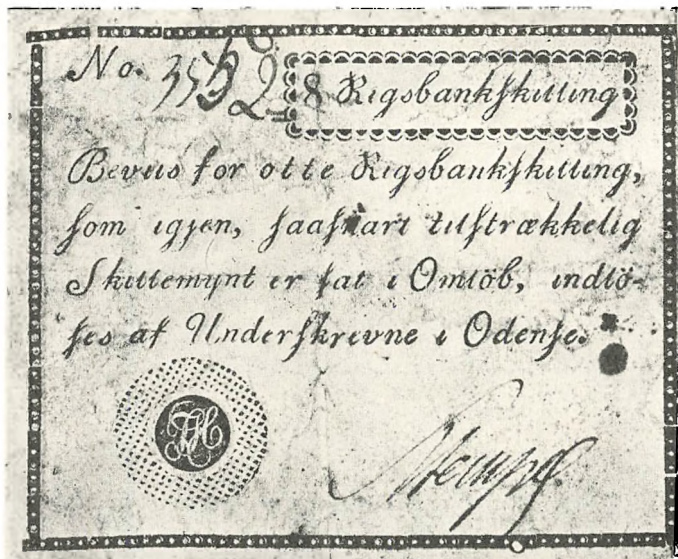 No. 3552 8 Rigsbankskilling
Beviis for otte Rigsbankskilling,
som igjen, saasnart tilstrækkelig
Skillemynt er sat i Omlöb, indlö-
ses af Underskrevne i Odense.
Hempel